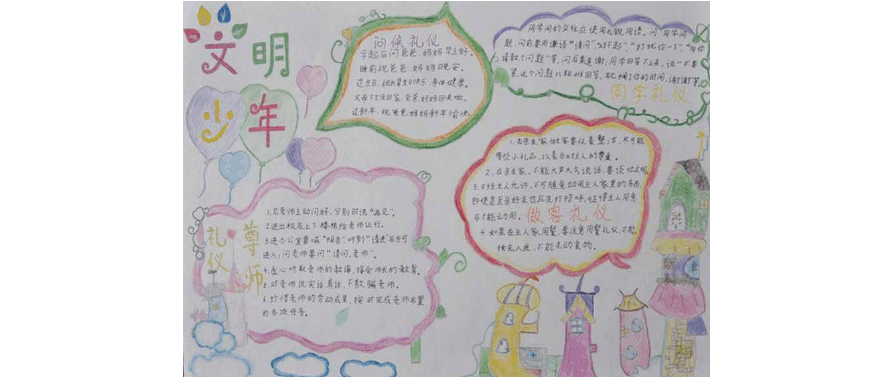 文明
少年
问候礼仪
早起后问爸爸、妈妈早上好。
睡前祝爸爸、妈妈晚安。
过生日,祝大家生日快乐,身体健康。
父母下班回家,爸爸妈妈回来啦。
过新年,祝爸爸妈妈新年愉快。
同学间的交往应使用礼貌用语。问同学问
题,问前要用谦语“请问”,“对不起”,“打扰你一下”,
请教个问题”等,问后要道谢,同学回答不上来,说“不要
紧,这个问题比较难回答,耽搁了你的时间,谢谢”等
同学礼仪
1.去亲友家做客要仪表整洁,尽可能
带些小礼品,以表示对主人的尊重。
2.在亲友家,不能大声大气说话,要谈吐文明
3.不经主人允许,不可随意动用主人家里的东西,
即使是至亲好友也应先打招呼,征得主人同意
后才能动用。
做客礼仪
4.如果在主人家用餐,要注意用餐礼仪,不能
抢先入座,不能先动食物。
尊师
礼仪
1.见老师主动问好,分别时说“再见”。
2.进出校及上下楼梯给老师让行。
3.进办公室要喊“报告”,听到“请进”后方可
进入;问老师要问“请问,老师”。
4.虚心听取老师的教诲,接受师长的教育。
5.对老师说实话、真话,不欺骗老师。
6.珍惜老师的劳动成果,按时完成老师布置
的各项任务。